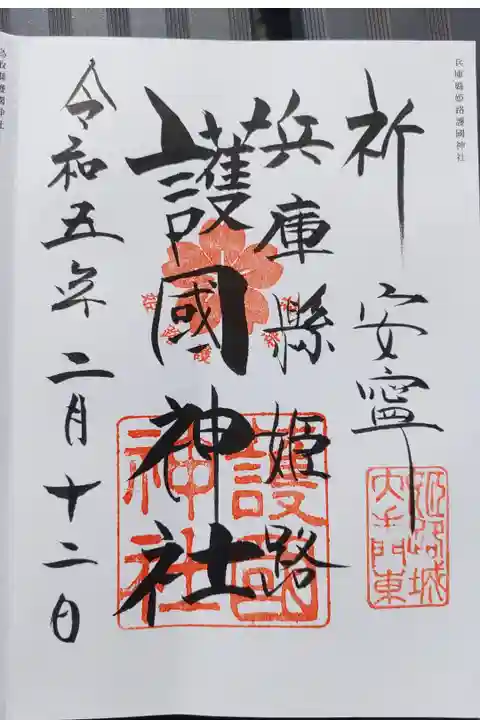 兵庫縣姫路護國神社
祈 安寧
兵庫縣姫路
護國神社
令和五年二月十二日
護國
神社
姫路城
大手門東
鳥取縣護國神社